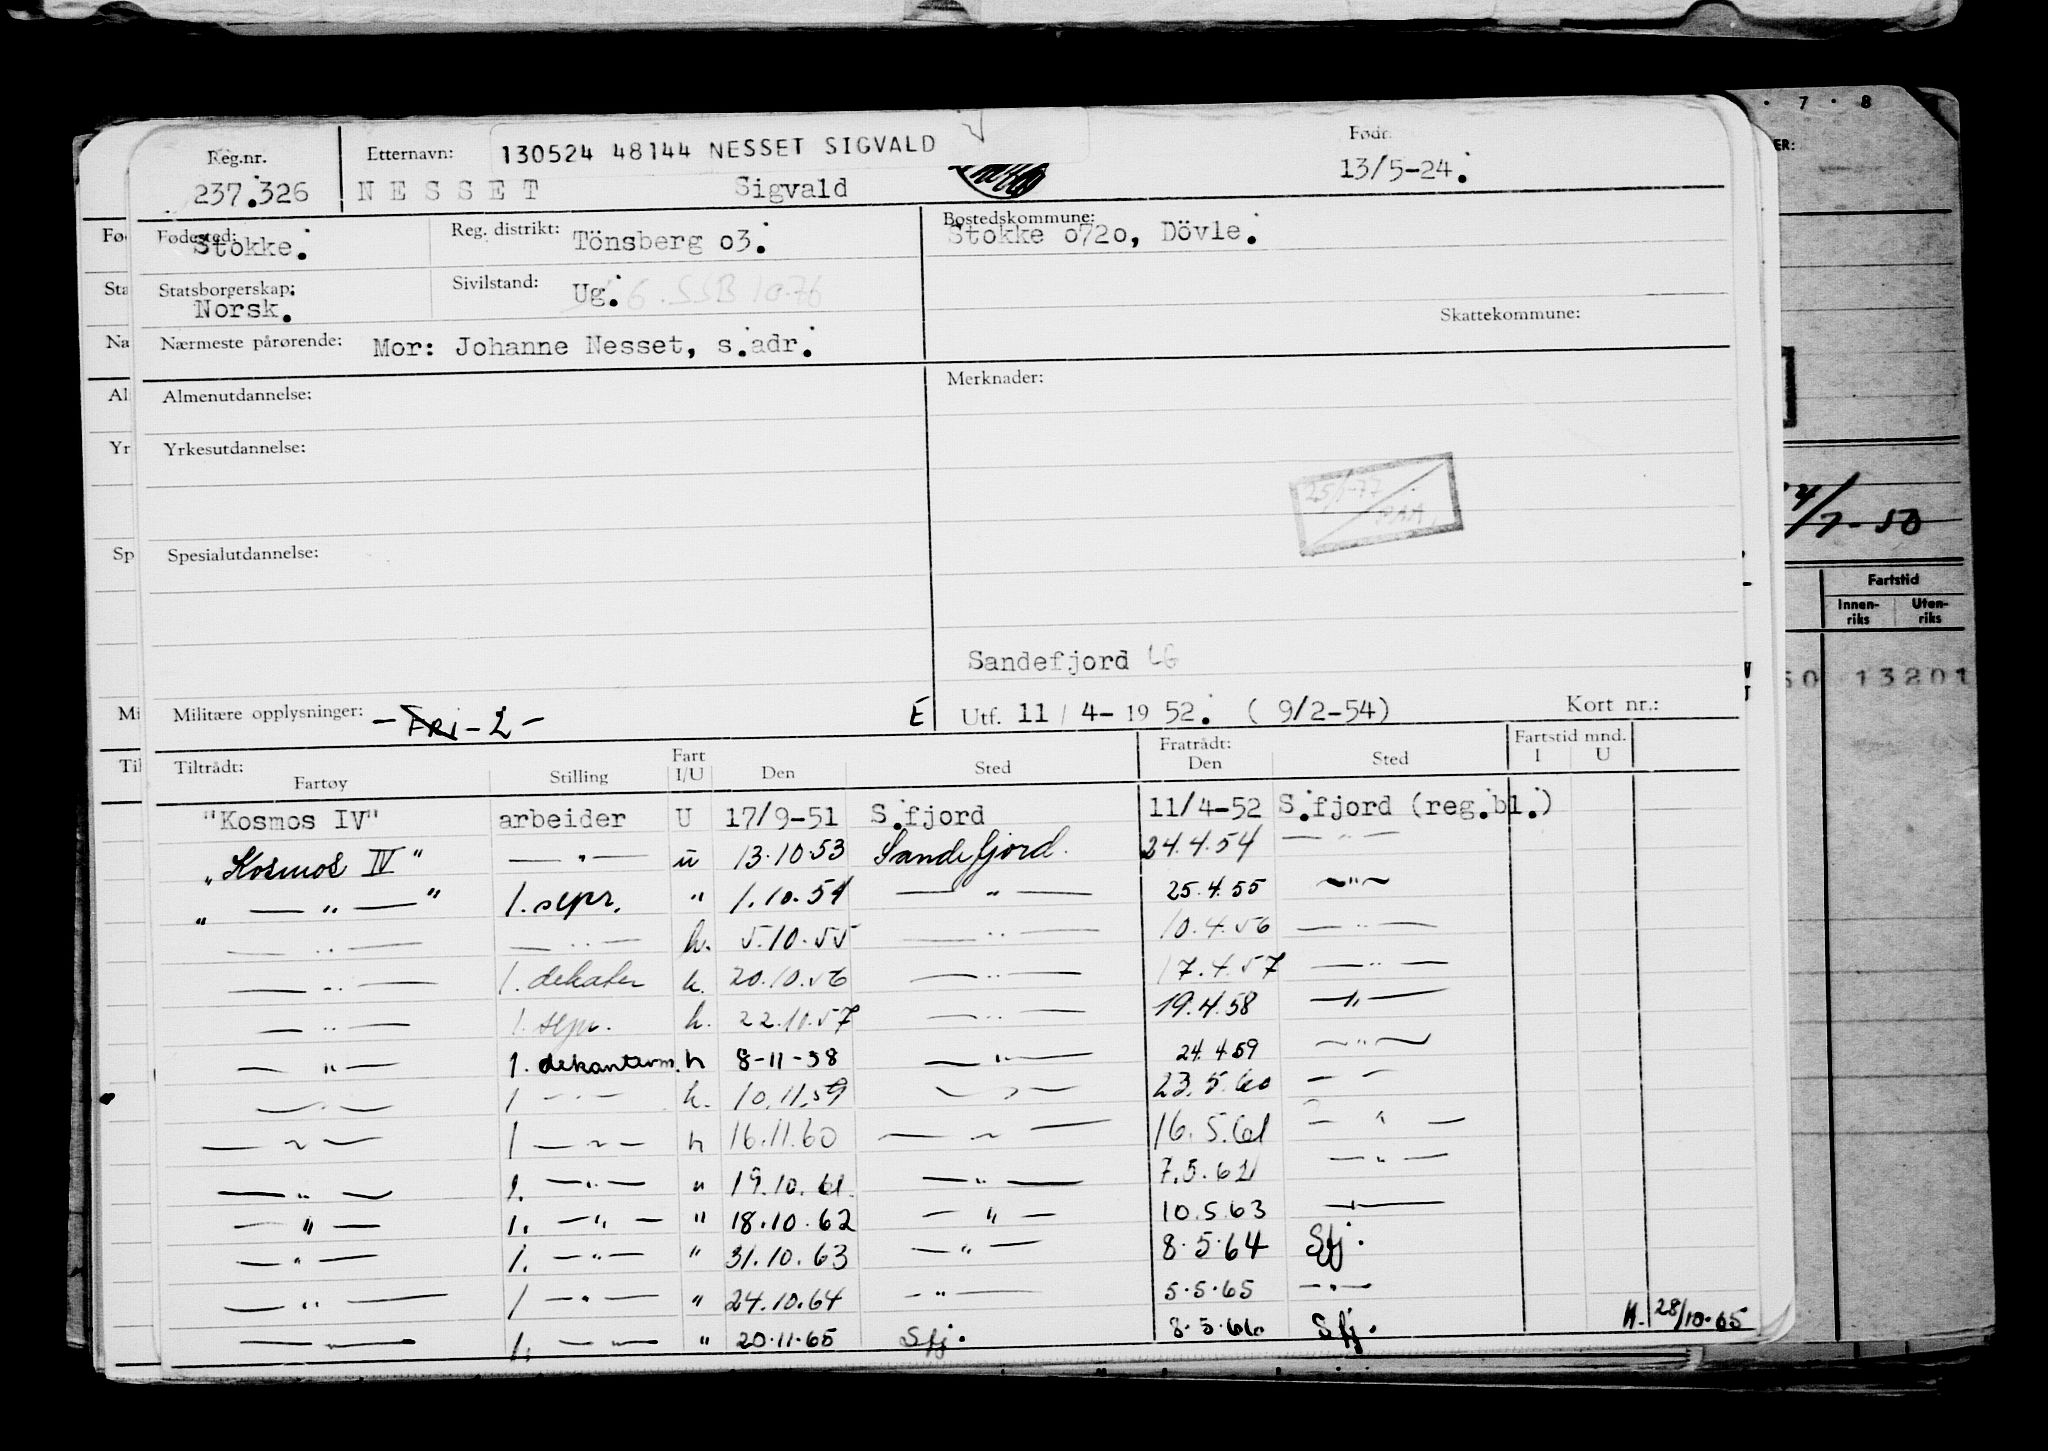 Reg.nr. Etternavn: 130524 48144 NESSET SIGVALD Født
237.326 NESSET Sigvald 13/5-24.
Fødested: Reg. distrikt: Tönsberg o3. Bostedskommune:
Stokke. Stokke o72o, Dövle.
Statsborgerskap: Sivilstand: Ug. 6. SSB 10.76
Norsk. Skattekommune:
Nærmeste pårørende: Mor: Johanne Nesset, s.adr.
Almenutdannelse: Merknader:
Yrkesutdannelse:
25/1-77
Spesialutdannelse:
Sandefjord LG
Militære opplysninger: - FRI - 2 - E Utf. 11 / 4- 19 52. ( 9/2-54) Kort nr.:
Tiltrådt: Fartøy Stilling Fart I/U Den Sted Fratrådt: Den Sted Fartstid mnd. I U
"Kosmos IV" arbeider U 17/9-51 S.fjord 11/4-52 S.fjord (reg.bl.)
"Kosmos IV" — " — u 13.10.53 Sandefjord. 24.4.54 — " —
" — " — " 1. sepr. " 1.10.54 — " — 25.4.55 — " —
— " — — " — u. 5.10.55 — " — 10.4.56 — " —
— " — 1. dekanter u. 20.10.56 — " — 17.4.57 — " —
— " — 1. sepr. u. 22.10.57 — " — 19.4.58 — " —
— " — 1. dekanterm. u 8-11-58 — " — 24.4.59 — " —
— " — 1 — " — u. 10.11.59 — " — 23.5.60 — " —
— " — 1 — " — u 16.11.60 — " — 16.5.61 — " —
— " — 1. — " — " 19.10.61. — " — 7.5.62 — " —
— " — 1. — " — " 18.10.62 — " — 10.5.63 — " —
— " — 1. — " — " 31.10.63 — " — 8.5.64 Sfj.
— " — 1 — " — " 24.10.64 — " — 5.5.65 — " —
— " — 1. — " — " 20.11.65 Sfj. 8.5.66 Sfj. 28/10.65
7 8
ER:
4/7-50
Fartstid
Innen-riks Uten-riks
50 13201